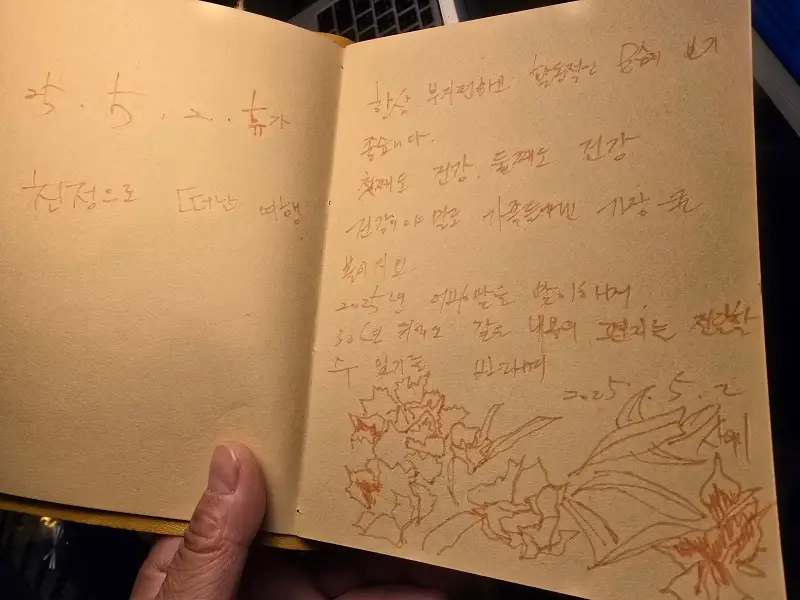 25. 5. 2. 휴가
친정으로 떠난 여행
항상 부지런하고 활동적인 모습이 보기
좋습니다.
첫째도 건강, 둘째도 건강
건강이야 말로 가족들에겐 가장 큰
복이지요
2025년 어버이날을 맞이하여
30년 뒤에도 같은 내용의 편지를 전달할
수 있기를 바라며
2025. 5. 2